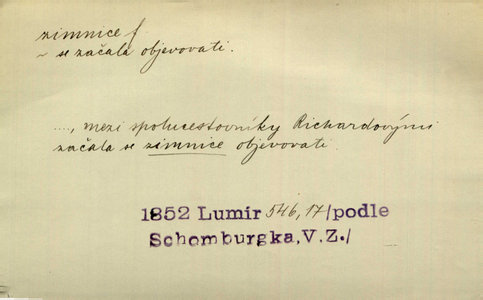 zimnice f
~ se začala objevovati.
...., mezi spolucestovníky Richardovými
začala se zimnice objevovati.
1852 Lumír 546,17/podle
Schomburgka,V.Z./